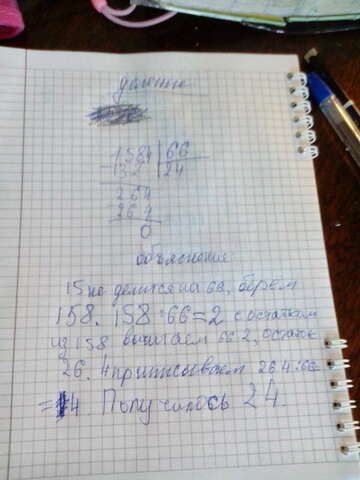 деление
1584 66
132 24
264
264
0
объяснение
15 не делится на 66, берем
158. 158:66=2 с остатком
из 158 вычитаем 66 2, остаток
26. 4 приписоваем 264:66
=4 Получилось 24.